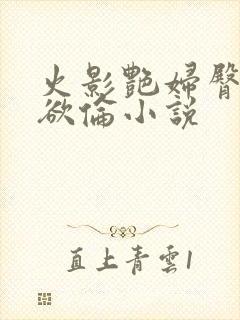 火影艷婦臀
欲倫小說
直上青雲1